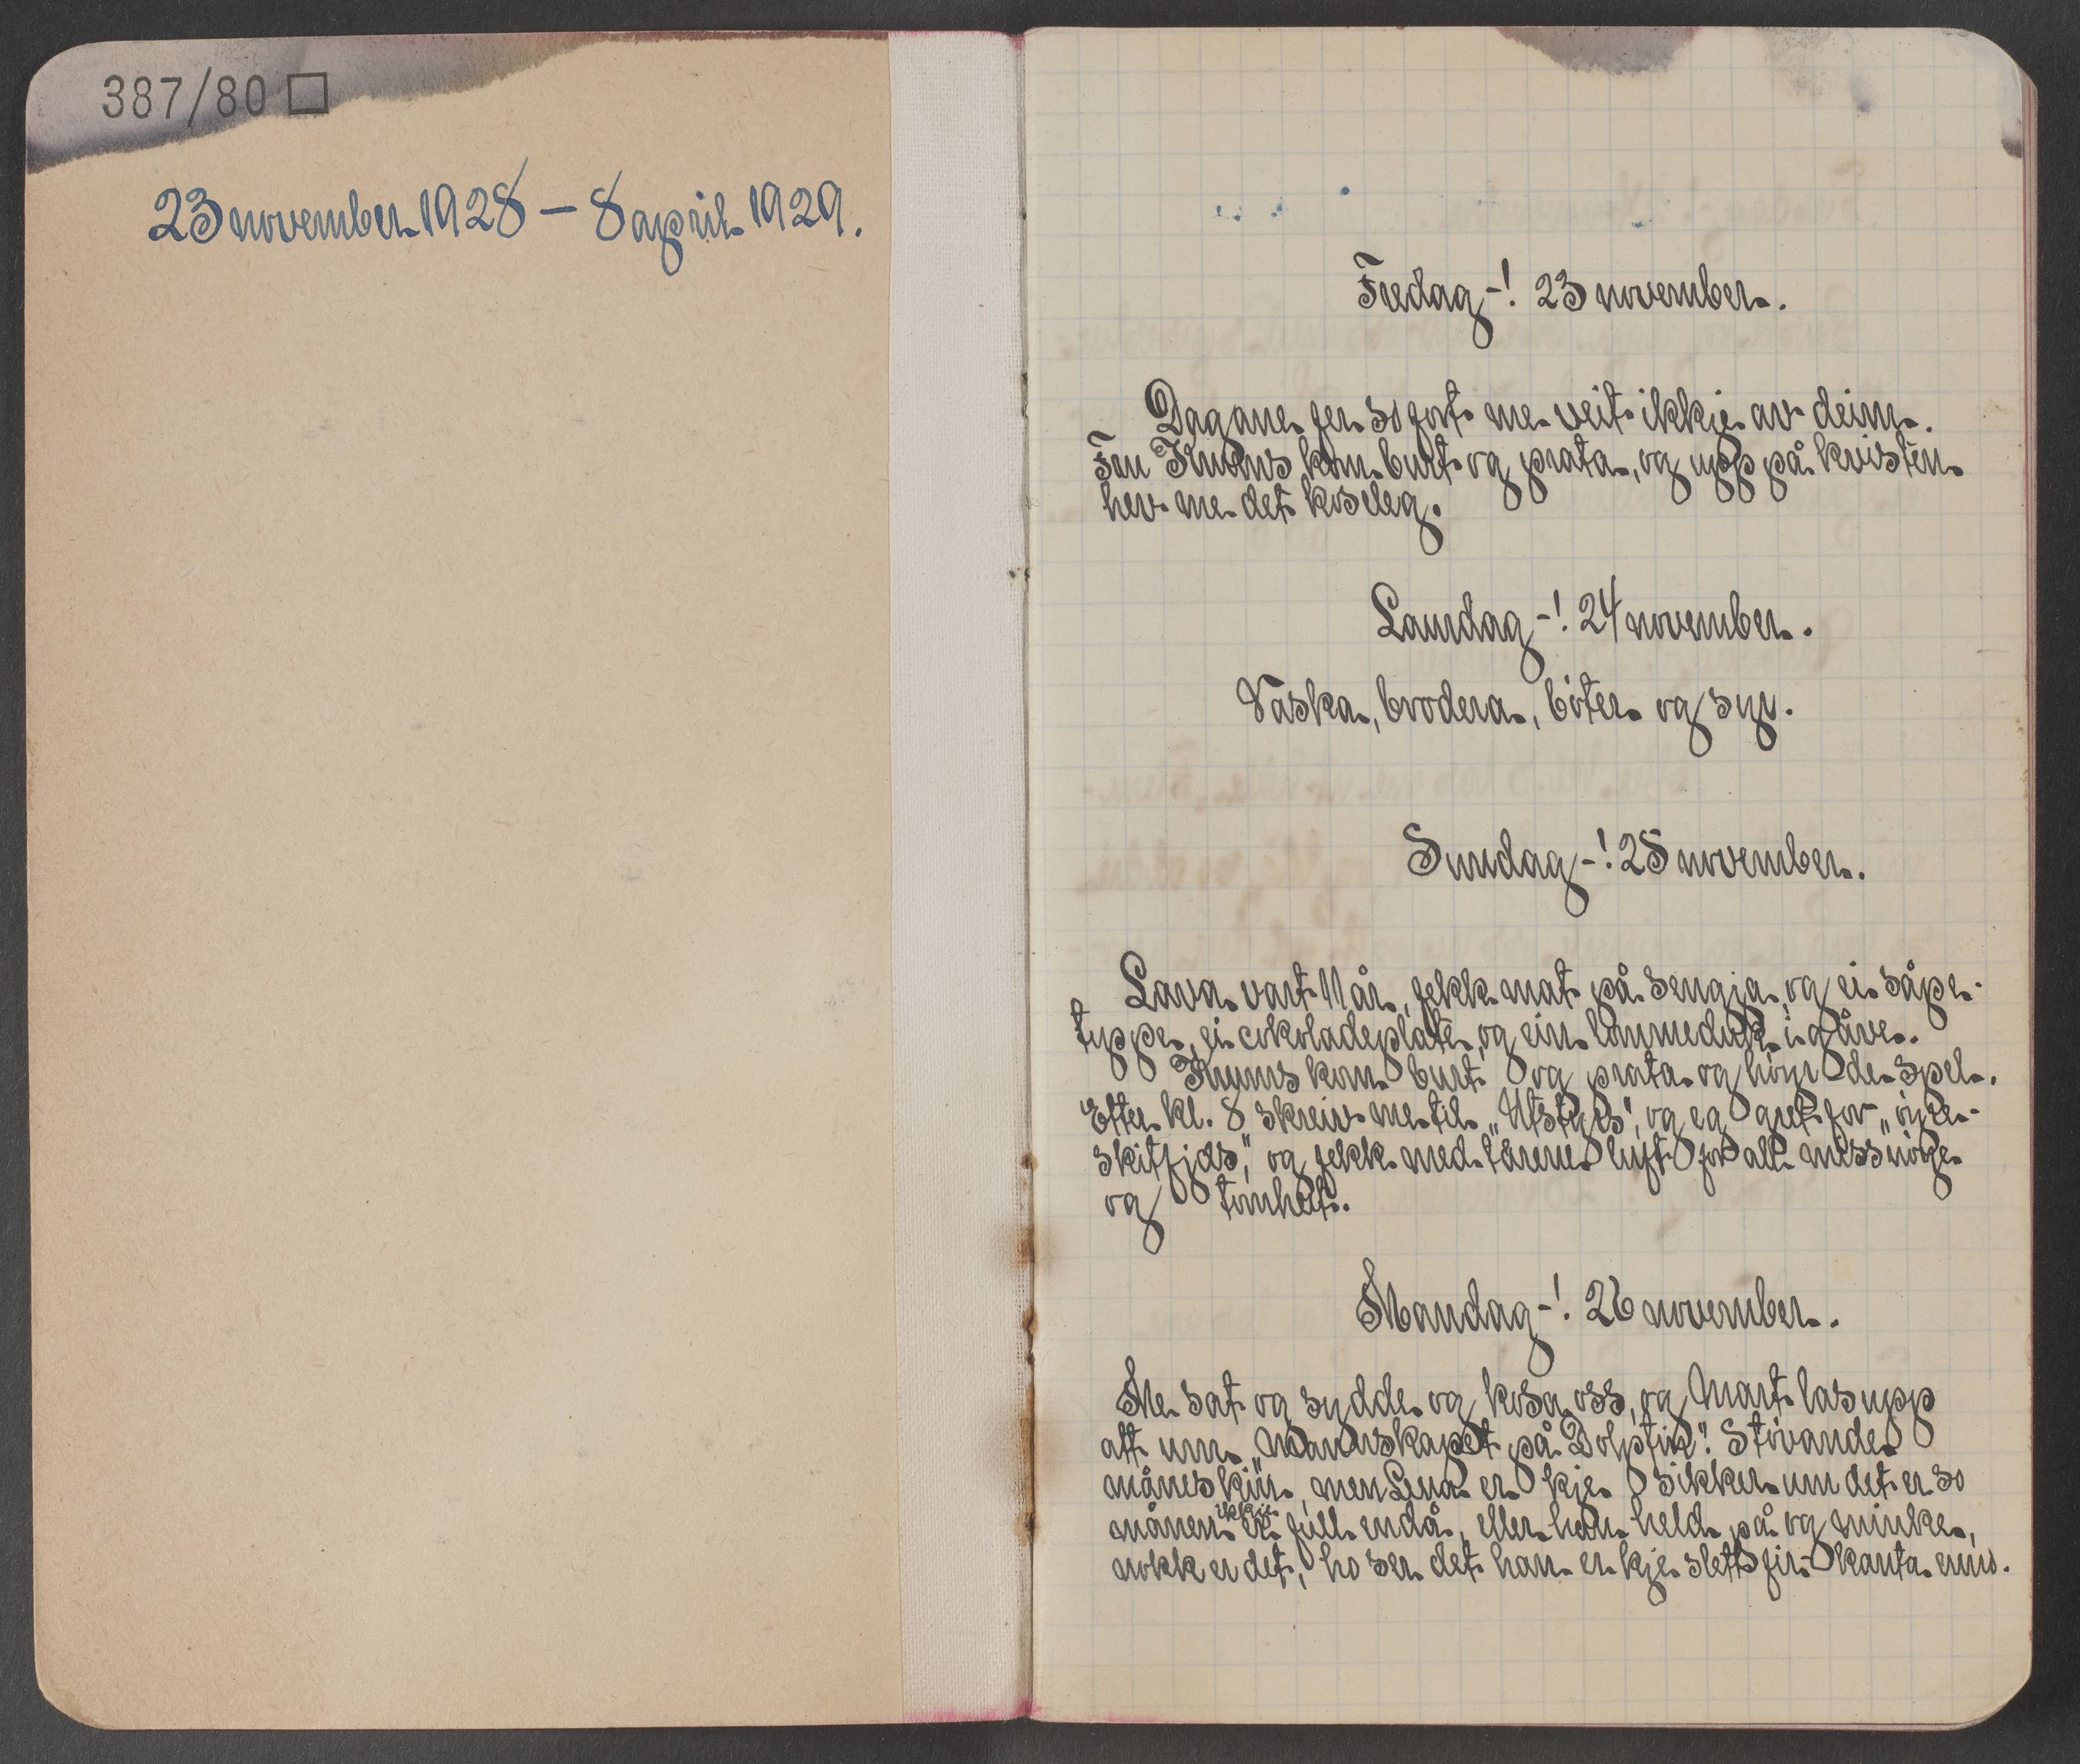 387/80 □
23 november 1928 – 8 april 1929.
Fredag -! 23 november.
Dagane fer so fort me veit ikkje av deim.
Fru Krums kom burt og prata, og upp på kvisten
hev me det koseleg.
Laurdag -! 24 november.
Vaska, brodera, böter og syr.
Sundag -! 25 november.
Lava vart 11 år, fekk mat på sengja og ei såpe-
typpe, ei cokoladeplate og ein lommeduk i gåve.
Krums kom burt og prata og höyrde spel.
Etter kl. 8 skreiv me til „Utstyrs", og eg gret for „
skitfjas," og fekk med tårene luft for all missnöye
og tomheit.
Mandag -! 26 november.
Me sat og sydde og kosa oss, og Mart las upp
att um „Mannskapet på Dolpfin". Stövande
måneskin, men Lena er kje sikker um det er so
månen ikkje er full endå, eller han held på og minke,
nokk er det, ho ser det han er kje slett fir-kanta enno.